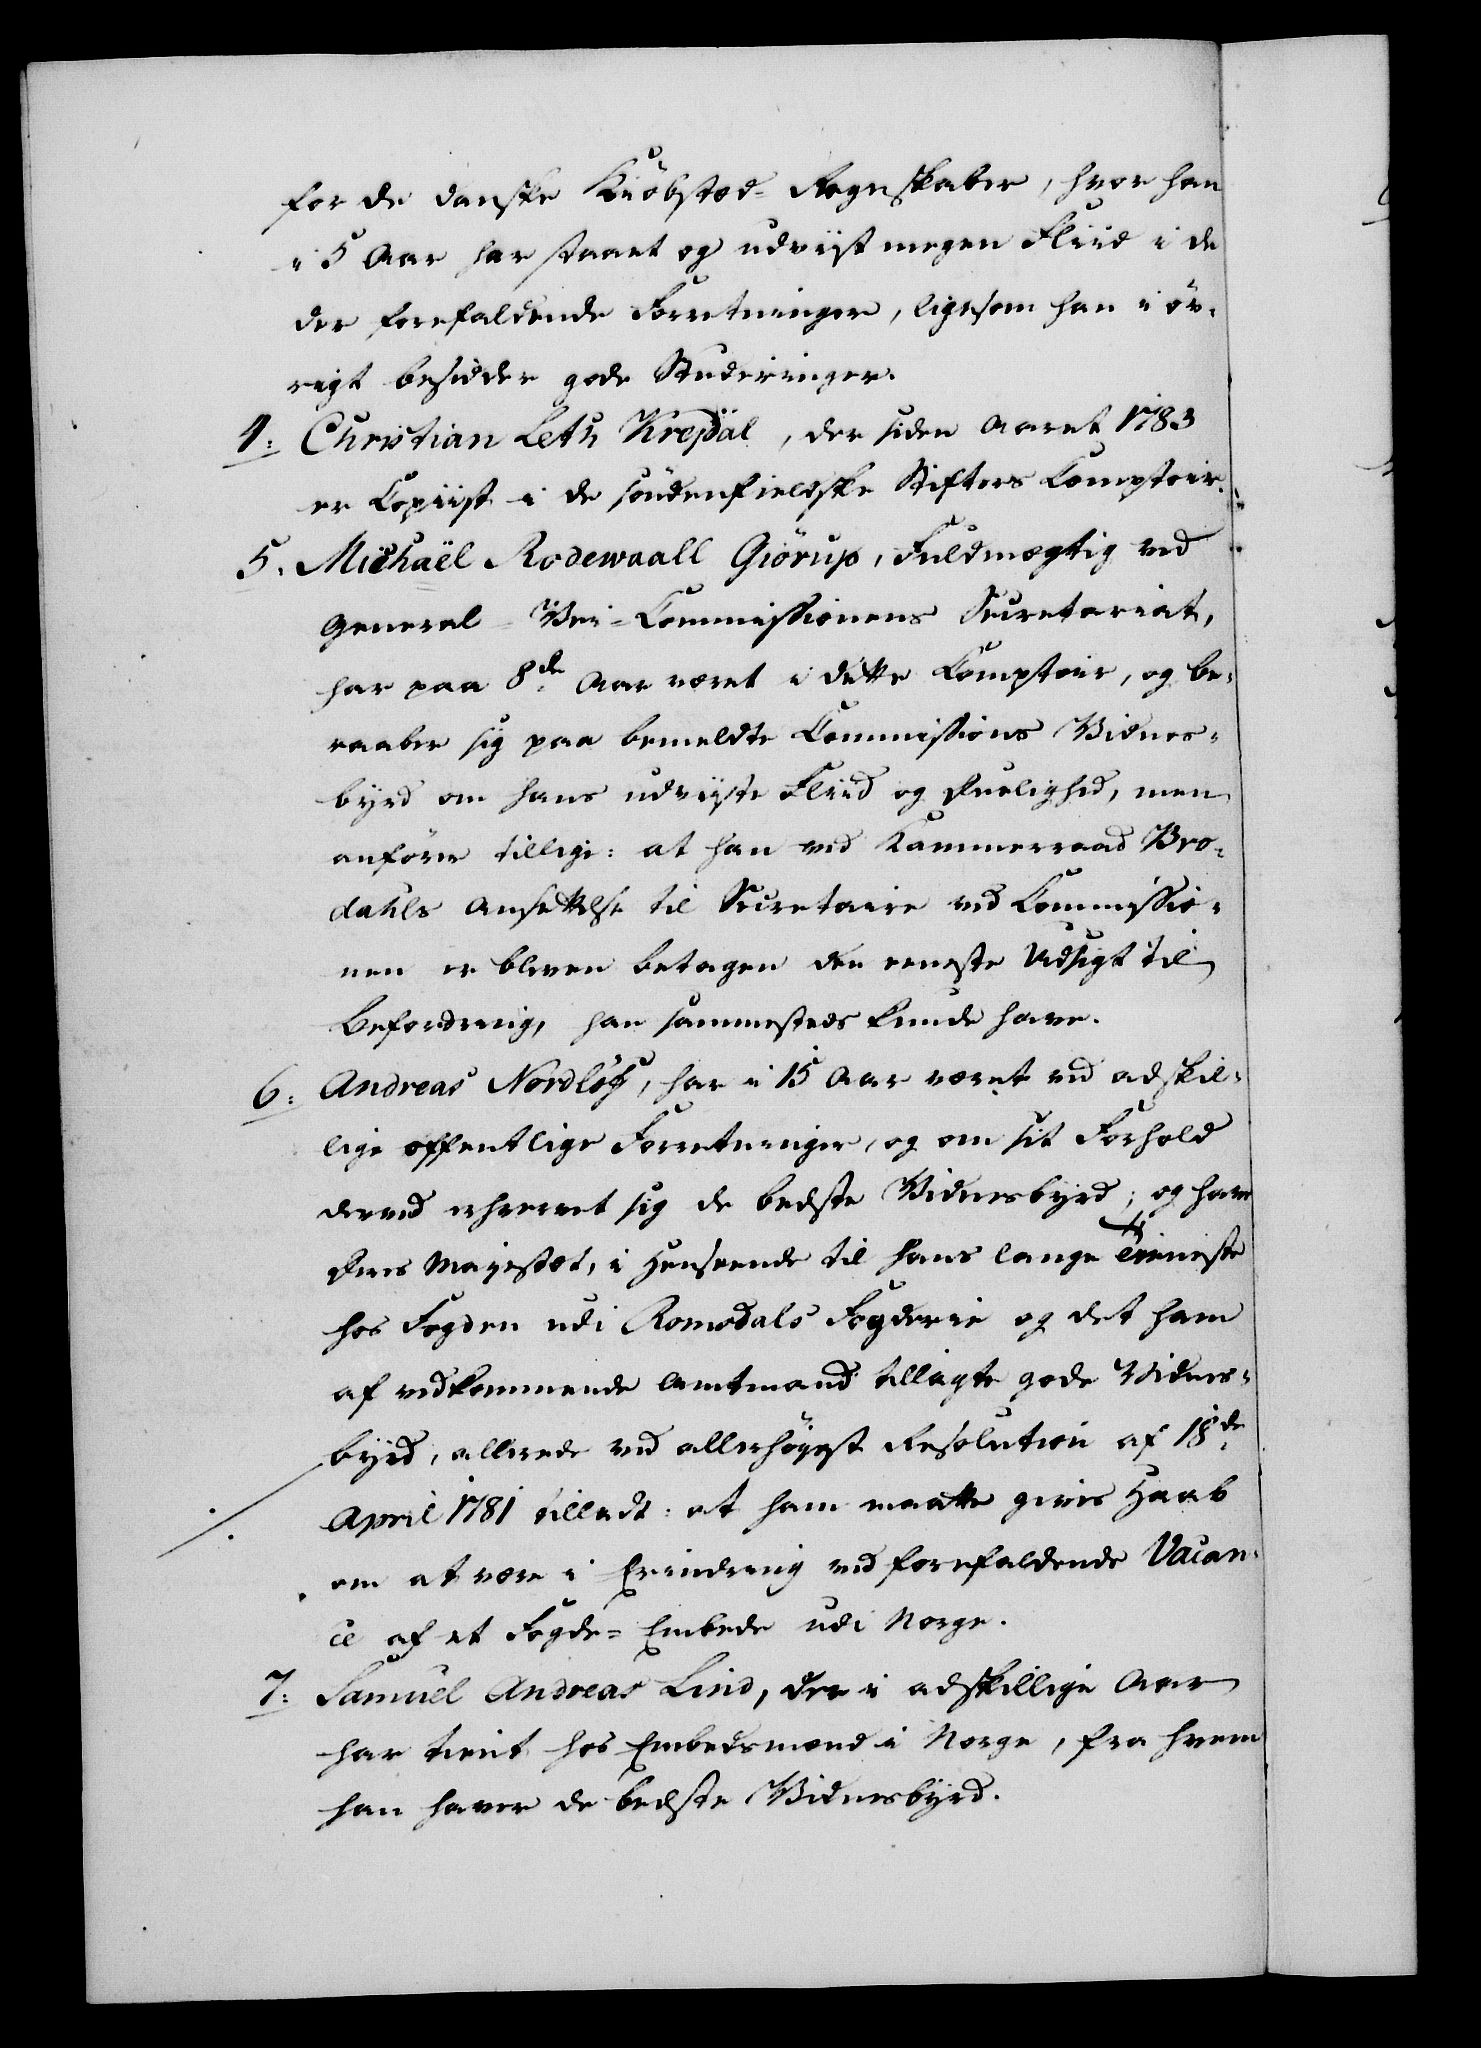 for de danske Kiöbstæd-Regnskaber, hvor han
i 5 Aar har staaet og udviist megen Fliid i de
der forefaldende Forretninger, ligesom han i öv-
rigt besidder gode Studeringer.
4: Christian Leth Krejdal, der siden Aaret 1783
er Copiist i de söndenfieldske Stifters Comptoir.
5. Michaël Rodewaall Giörup, Fuldmægtig ved
General-Vei-Commissionens Secretariat,
har paa 8de Aar været i dette Comptoir, og be-
raaber sig paa bemeldte Commissions Vidnes-
byrd om hans udviiste Fliid og Duelighed, men
anförer tillige: at han ved Kammerraad Bro-
dahls Ansættelse til Secretaire ved Commissio-
nen er bleven betagen den eneste Udsigt til
Befordring, han sammesteds kunde have.
6: Andreas Nordlöf, har i 15 Aar været ved adskil-
lige offentlige Forretninger, og om sit Forhold
derved erhvervet sig de bedste Vidnesbyrd; og har
Deres Majestæt, i Henseende til hans lange Tieneste
hos Fogden udi Romsdals Fogderie og det ham
af vedkommende Amtmand tillagte gode Vidnes-
byrd, allerede ved allerhöyest Resolution af 18de
April 1781 tilladt: at ham maatte gives Haab
om at være i Erindring ved forefaldende Vacan-
ce af et Fogde-Embede udi Norge.
7: Samuel Andreas Lind, der i adskillige Aar
har tient hos Embedsmænd i Norge, fra hvem
han haver de bedste Vidnesbyrd.